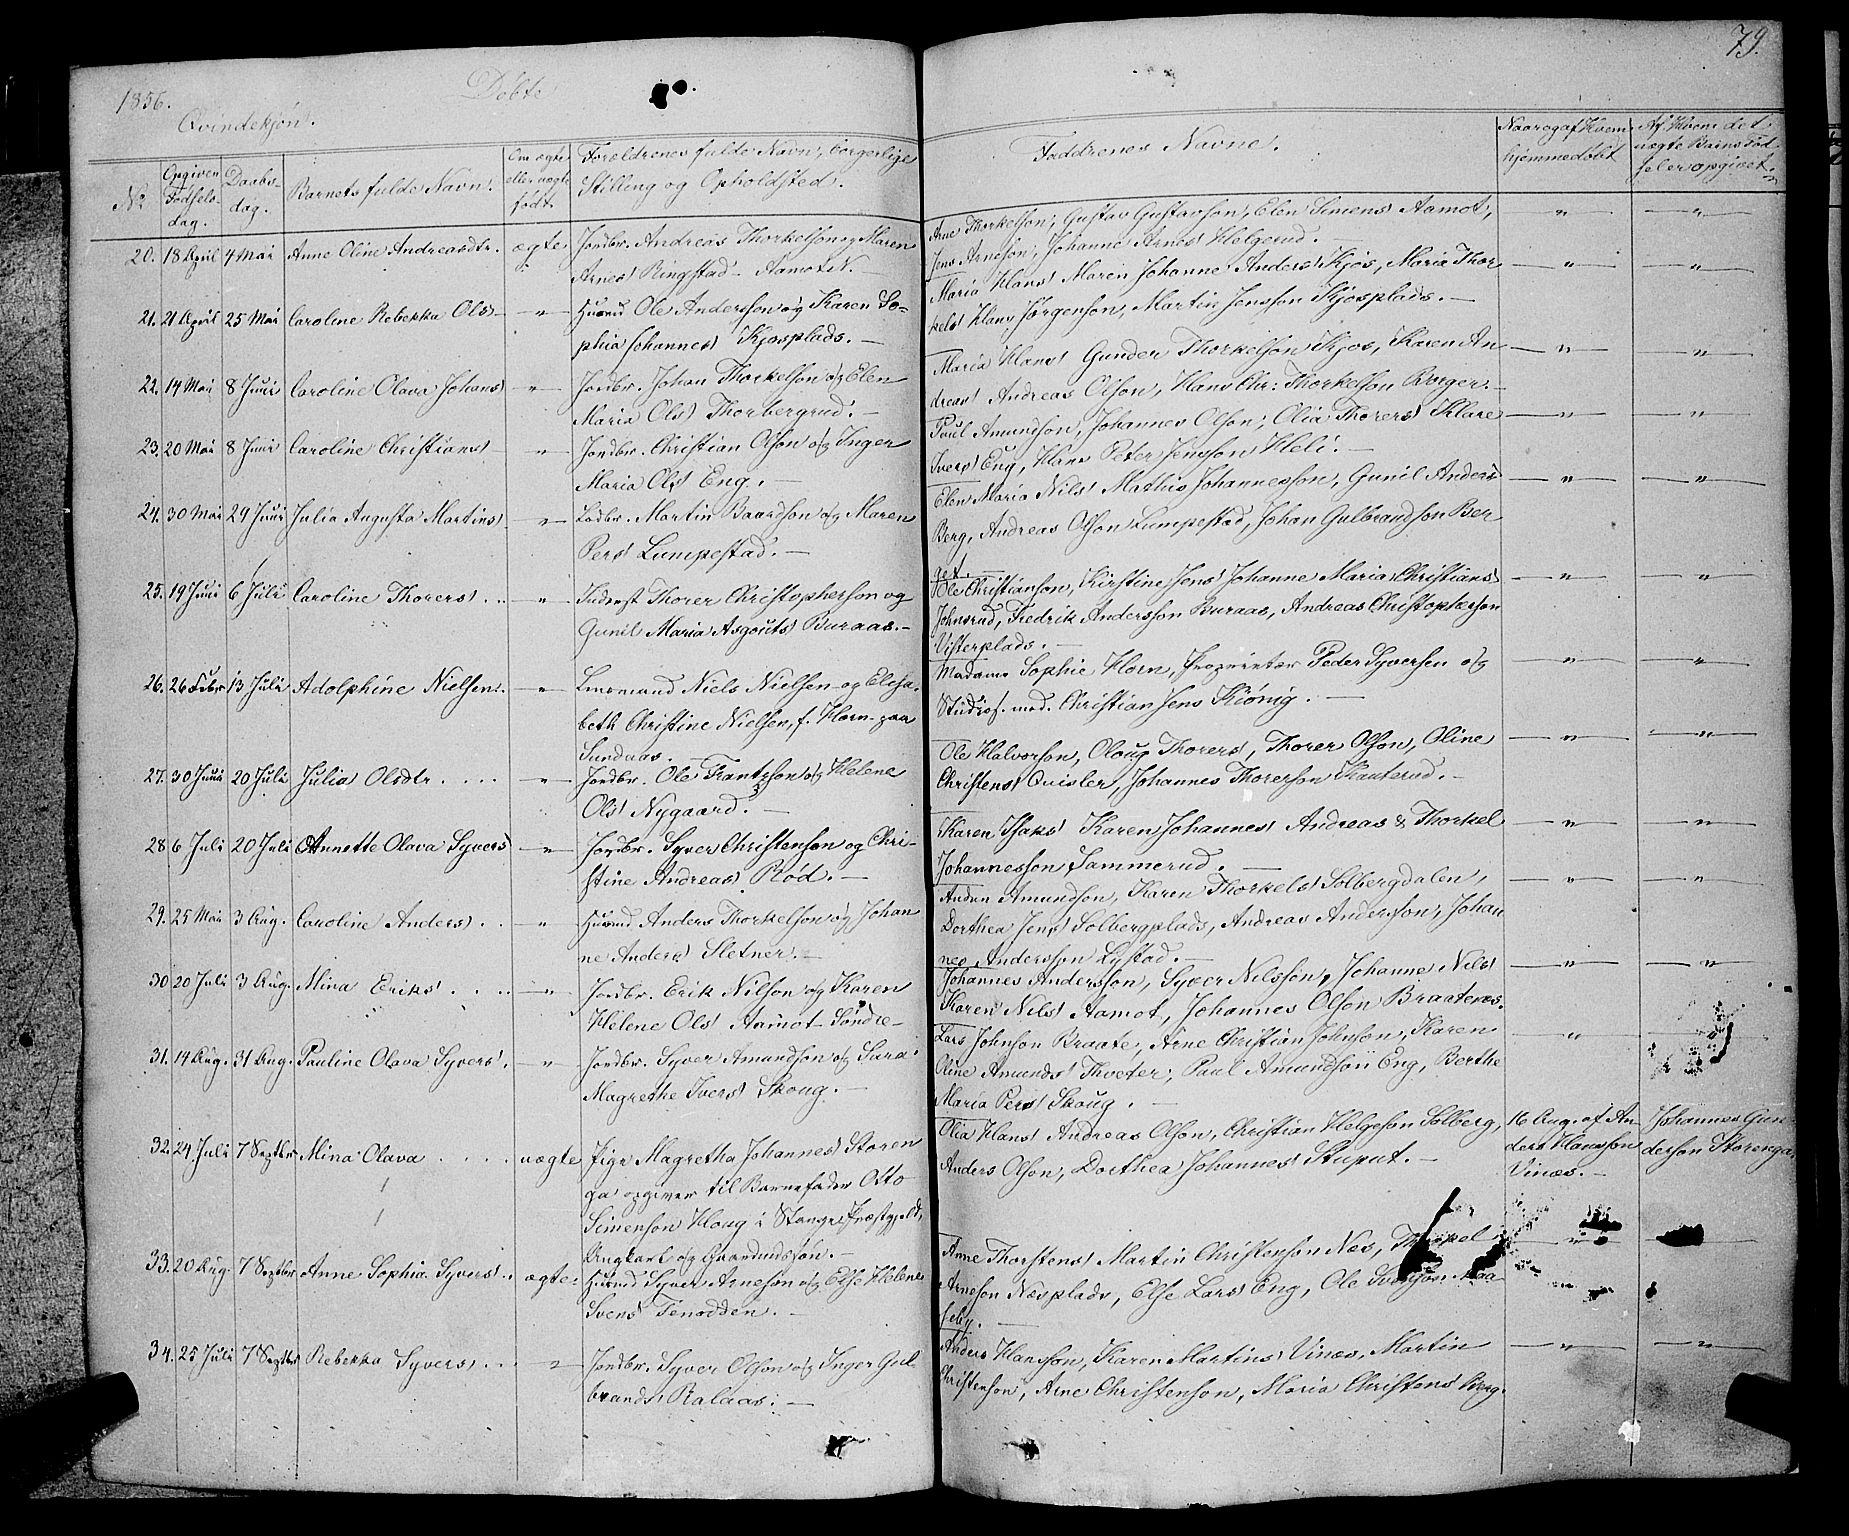 1856. Døbte 79.
Qvindekjøn.
No
Opgiven Fødsels-dag.
Daabs-dag.
Barnets fulde Navn.
Om ægte eller uægte født.
Forældrenes fulde Navn, borgerlige Stilling og Opholdsted.
Faddrenes Navne.
Naar og af Hvem hjemmedøbt
Af Hvem det uægte Barns Fødsel er opgivet.
20. 18 April 4 Mai Anne Oline Andreasdtr. ægte Jordbr. Andreas Thorkelson og Maren
Arnes Ringstad - Aamot N. —
Arne Thorkelson, Gustav Gustavson, Elen Simens Aamot,
Jens Arneson, Johanne Arnes Helgerud. — " "
21. 21 April 25 Mai Caroline Rebekka Ols — " Huusmd Ole Andersson og Karen So-
phia Johannes Kjosplads. —
Maria Hans Maren Johanne Anders Kjos, Maria Thor
kels Hans Jørgenson, Martin Jensson Kjosplads. — " "
22. 14 Mai 8 Juni Caroline Olava Johans " Jordbr. Johan Thorkelson og Elen
Maria Ols Thorbergrud. —
Maria Hans Gunder Thorkelson Kjos, Karen An
dreas Andreas Olson, Hans Chr: Thorkelson Berger. — " "
23. 20 Mai 8 Juni Caroline Christians — " Jordbr. Christian Olson og Inger
Maria Ols Eng. —
Paul Amundson, Johannes Olson, Olia Thorers Klare
Ivers Eng, Hans Peter Jensson Heli. — " "
24. 30 Mai 29 Juni Julia Augusta Martins " Lodbr. Martin Baardson og Maren
Pers Lumpestad. —
Elen Maria Nils Mathis Johannesson, Gunil Anders
Berg, Andreas Olson Lumpestad, Johan Gulbrandson Ber
get. — " "
25. 19 Juni 6 Juli Caroline Thorers . . " Inderst Thorer Christopherson og
Gunil Maria Asgouts Buraas. —
Ole Christianson, Kirstine Jens Johanne Maria Christians
Johnsrud, Fredrik Andersson Buraas, Andreas Christopherson
Visterplads. — " "
26. 26 Febr 13 Juli Adolphine Nielsen. " Niels Nielsen og Elisa
beth Christine Nielsen, f. Horn paa
Sundaas.
Madame Sophie Horn, Proprietær Peder Syversen og
Studios. med. Christian Jens Kiønig. — " "
27. 30 Juni 20 Juli Julia Olsdtr. . . . . " Jordbr. Ole Frantzson og Helene
Ols Nygaard. —
Ole Halvorson, Oloug Thorers, Thorer Olson, Oline
Christens Quisler, Johannes Thorerson Kanterud. — " "
28 6 Juli 20 Juli Annette Olava Syvers " Jordbr. Syver Christenson og Chri-
stine Andreas Rød. —
Karen Isaks Karen Johannes Andreas & Thorkel
Johannesson Sammerud. — " "
29. 25 Mai 3 Aug. Caroline Anders . . " Huusmd Anders Thorkelson og Johan
ne Anders Sletner. —
Amundson, Karen Thorkels Solbergdalen,
Dorthea Jens Solbergplads, Andreas Andersson, Johan
nes Andersson Lystad. — " "
30 20 Juli 3 Aug. Mina Eriks . . . . " Jordbr. Erik Nilson og Karen
Helene Ols Aamot Søndre —
Johannes Andersson, Syver Nilsson, Johanne Nils
Karen Nils Aamot, Johannes Olson Braatenæs. " "
31. 14 Aug. 31 Aug. Pauline Olava Syvers . " Jordbr. Syver Amundson og Sara
Magrethe Ivers Skoug. —
Lars Johnson Braate, Arne Christian Johnson, Karen
Oline Amunds Thveter, Paul Amundson Eng, Berthe
Maria Pers Skoug. — "
32. 24 Juli 7 Septbr Mina Olava . . . . uægte Pige Magretha Johannes Storen
ga opgiver til Barnefader Otto
Simenson Houg i Stange Præstegjeld,
Ungkarl og Gaardmdssøn. —
Olia Hans Andreas Olson, Christian Helgeson Solberg,
Anders Olson, Dorthea Johannes Stuput. —
16 Aug. af An
ders Hansson
Vinæs. —
Johannes Gun-
derson Storenga.
33. 20 Aug. 7 Septbr Anne Sophia Syvers . . ægte Huusmd Syver Arneson og Else Helene
Svens Tenodden. —
Anne Thorstens Martin Christenson Næs, Thorkel
Arneson Næsplads, Else Lars Eng, Ole
seby. — "
34. 25 Juli 7 Septbr Rebekka Syvers . . " Jordbr. Syver Olson og Inger Gul
brands Ralaas. —
Anders Hansson, Karen Martins Vinæs, Martin
Christenson, Arne Christenson, Maria Christens Berg. " "